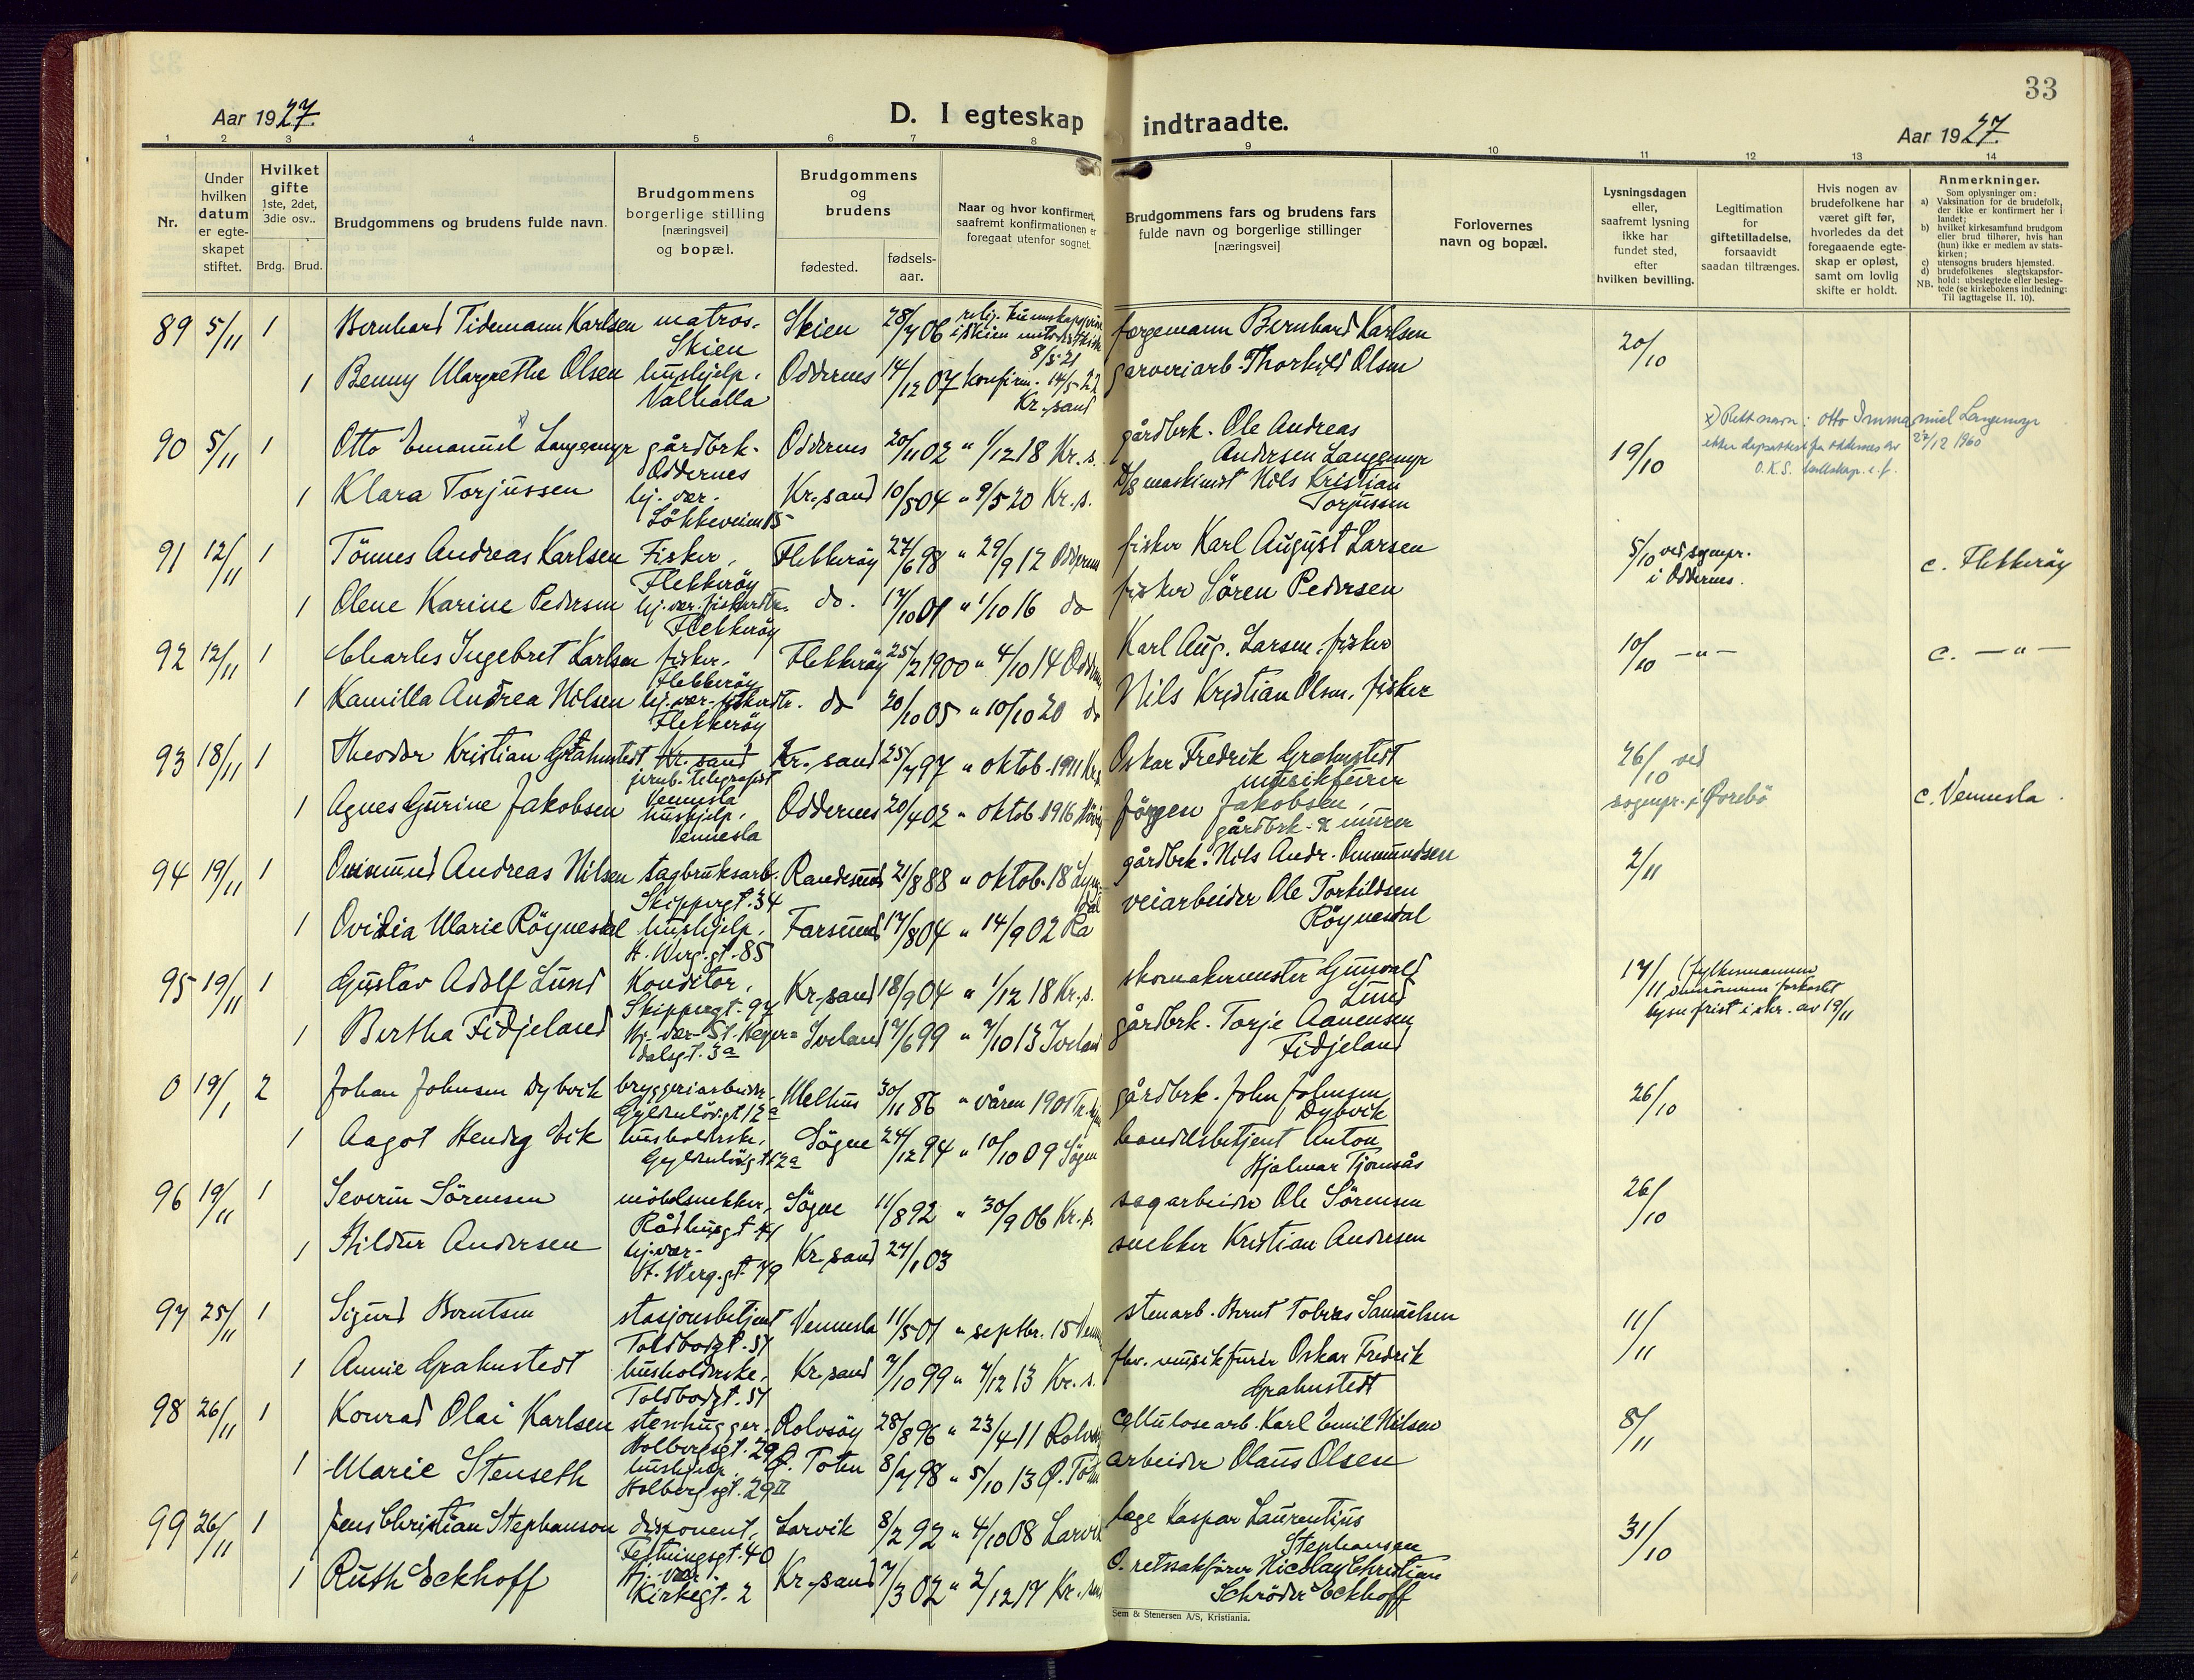 33
Aar 1927.
D. I egteskap indtraadte.
Aar 1927.
1 2 3 4 5 6 7 8 9 10 11 12 13 14
Nr.
Under hvilken datum er egte-skapet stiftet.
Hvilket gifte 1ste, 2det, 3die osv..
Brdg. Brud.
Brudgommens og brudens fulde navn.
Brudgommens borgerlige stilling [næringsvei] og bopæl.
Brudgommens og brudens
fødested. fødsels-aar.
Naar og hvor konfirmert, saafremt konfirmationen er foregaat utenfor sognet.
Brudgommens fars og brudens fars fulde navn og borgerlige stillinger [næringsvei]
Forlovernes navn og bopæl.
Lysningsdagen eller, saafremt lysning ikke har fundet sted, efter hvilken bevilling.
Legitimation for giftetilladelse, forsaavidt saadan tiltrænges.
Hvis nogen av brudefolkene har været gift før, hvorledes da det foregaaende egte-skap er opløst, samt om lovlig skifte er holdt.
Anmerkninger.
Som oplysninger om:
a) Vaksination for de brudefolk, der ikke er konfirmert her i landet;
b) hvilket kirkesamfund brudgom eller brud tilhører, hvis han (hun) ikke er medlem av stats-kirken;
c) utensogns bruders hjemsted.
d) brudefolkenes slegtskapsfor-hold: ubeslegtede eller besleg-tede (se kirkebokens indledning: Til iagttagelse II. 10).
NB.
89 5/11 1 Bernhard Tidemann Karlsen matros. Skien Skien 28/7 06 i Skien 8/5-21 færgemann Bernhard Karlsen 20/10
1 Benny Margrethe Olsen hushjelp. Valhalla Oddernes 14/12 07 konfirm. 14/5-22 Kr.sand garveriarb. Thorkild Olsen
90 5/11 1 Otto Emanuel x) Langemyr gårdbrk. Oddernes Oddernes 20/11 02 " 1/12 18 Kr.s. gårdbrk. Ole Andreas Andersen Langemyr 19/10 x) Rett navn: Otto Immanuel Langemyr 27/12 1960
1 Klara Torjussen hj. vær. Lökkeveien 15 Kr.sand 10/5 04 " 9/5 20 Kr.s. D/S maskinist Nils Kristian Torjussen
91 12/11 1 Tönnes Andreas Karlsen Fisker, Flekkeröy Flekkeröy 27/6 98 " 29/9 12 Oddernes fisker Karl August Larsen 5/10 ved sognepr. i Oddernes. c. Flekkeröy
1 Olene Karine Pedersen hj. vær. fiskerdtr. Flekkeröy do. 17/10 01 " 1/10 16 do fisker Sören Pedersen
92 12/11 1 Charles Ingebret Karlsen fisker. Flekkeröy Flekkeröy 25/2 1900 " 4/10 14 Oddern Karl Aug. Larsen, fisker 10/10 — " — c. — " —
1 Kamilla Andrea Nilsen hj. vær. fiskerdtr. Flekkeröy do 20/10 05 " 10/10 20 do Nils Kristian Olsen, fisker
93 18/11 1 Theodor Kristian Grahnstedt Kr. sand jernb. telegrafist Vennesla Kr. sand 25/7 97 " oktob. 1911 Kr.s Oskar Fredrik Grahnstedt musikfurer 26/10 ved sognepr. i Øvrebö c. Vennesla.
1 Agnes Gurine Jakobsen hushjelp, Vennesla Oddernes 20/4 02 " oktob. 1916 Jörgen Jakobsen, gårdbrk. & murer
94 19/11 1 Andreas Nilsen sagbruksarb. Skippergt. 34 Randesund 21/8 88 " oktob. 18 Lyngdal gårdbrk. Nils Andr. Ommundsen 2/11
1 Ovidia Marie Röynesdal hushjelp. H. Werg.gt. 85 Farsund 17/8 04 " 14/9 02 Ra veiarbeider Ole Torkildsen Röynesdal
95 19/11 1 Gustav Adolf Lund Konditor. Skippergt. 97 Kr.sand 18/9 04 " 1/12 18 Kr.s. skomakermester Gunvald Lund 17/11 (fylkesmannen forkortet lysn frist i skr. av 19/11
1 Bertha Fidjeland Hj. vær St. Hegre= dalsgt. 3a Iveland 7/6 99 " 7/10 13 Iveland gårdbrk. Torje Aanensen Fidjeland
0 19/1 2 Johan Johnsen Dybvik bryggeriarbeider. Gyldenlövsgt 12a Melhus 30/11 86 " våren 1901 gårdbrk. John Johnsen Dybvik 26/10
1 Aagot Hendry Eik husholderske. Gyldenlövsgt 12a Sögne 24/12 94 " 10/10 09 Sögne handelsbetjent Anton Hjalmar Tjomsås
96 19/11 1 Severin Sörensen möbelsnekker. Rådhusgt. 41 Sögne 11/8 92 " 30/9 06 Kr.s. sagarbeider Ole Sörensen 26/10
1 Hildur Andersen hj. vær. H. Werg. gt. 79 Kr.sand 27/1 03 snekker Kristian Andersen
97 25/11 1 Sigurd Berntsen stasjonsbetjent Toldbodgt. 51 Vennesla 11/5 01 " septbr. 15 Venn stenarb. Bernt Tobias Samuelsen 11/11
1 Annie Grahnstedt husholderske. Toldbodgt. 51 Kr.sand 7/10 99 " 7/12 13 Kr.s. fhv. musikfurer Oskar Fredrik Grahnstedt
98 26/11 1 Konrad Olai Karlsen stenhugger. Holbergsgt. 29 Rolvsöy 28/8 96 " 23/4 11 Rolvsö cellulosearb. Karl Emil Nilsen 8/11
1 Marie Stenseth hushjelp. Holbergsgt. 29 II Ø. Toten 8/7 98 " 5/10 13 Ø. Toten arbeider Olaus Olsen
99 26/11 1 Jens Christian Stephanson disponent. Festningsgt. 40 Larvik 8/2 92 " 4/10 08 Larvik læge Kaspar Laurentius Stephansen 31/10
1 Ruth Eckhoff Hj. vær. Kirkegt. 2 Kr.sand 7/3 02 " 2/12 17 Kr.san O. retssakförer Nicolay Christian Schröder Eckhoff
Sem & Stenersen A/S, Kristiania.